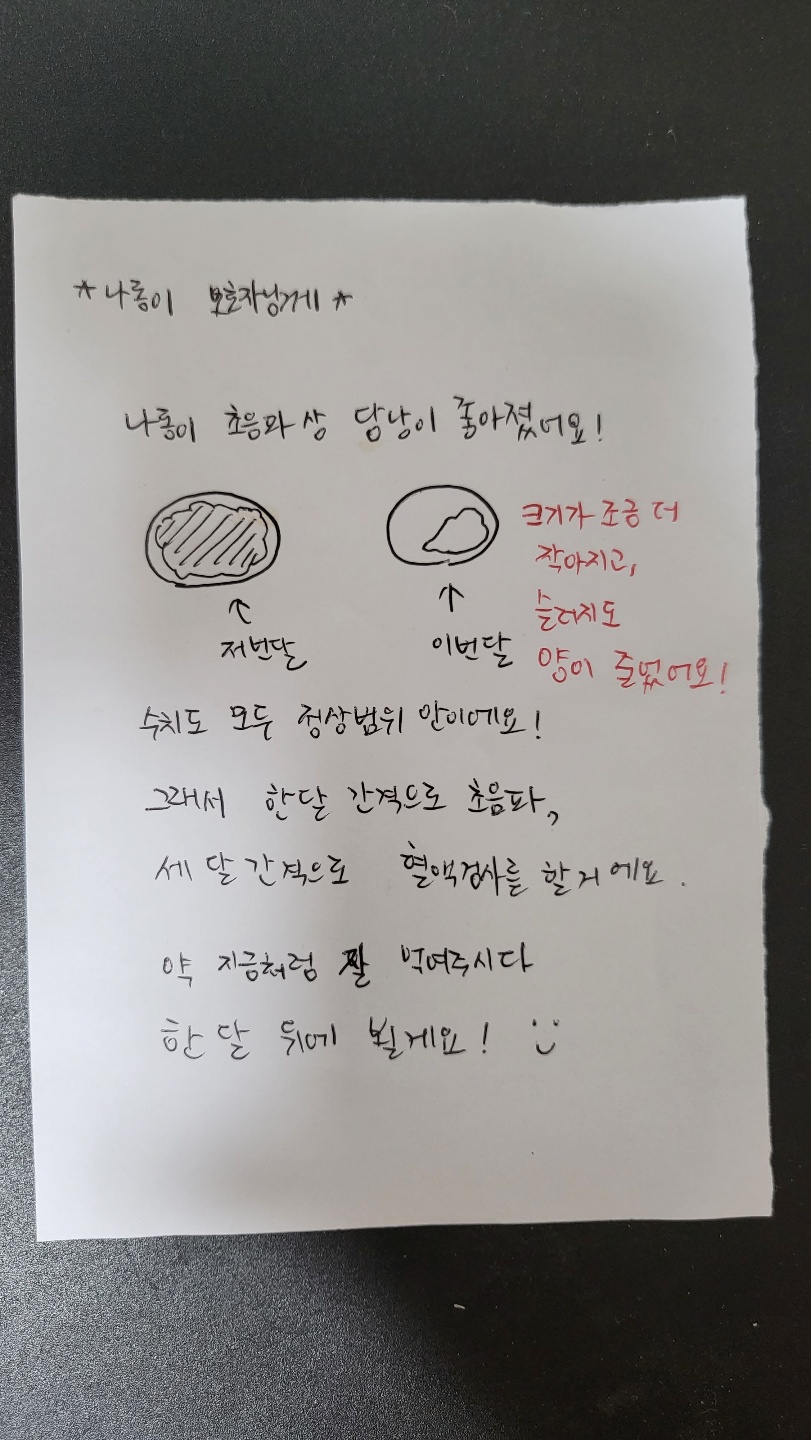 ☆나롱이 보호자님께☆
나롱이 초음파 상 담낭이 좋아졌어요!
크기가 조금 더
작아지고,
슬러지도
양이 줄었어요!
저번달
이번달
수치도 모두 정상범위 안이에요!
그래서 한달 간격으로 초음파,
세 달 간격으로 혈액검사를 할거에요.
약 지금처럼 잘 먹여주시다
한 달 뒤에 뵐게요! :)